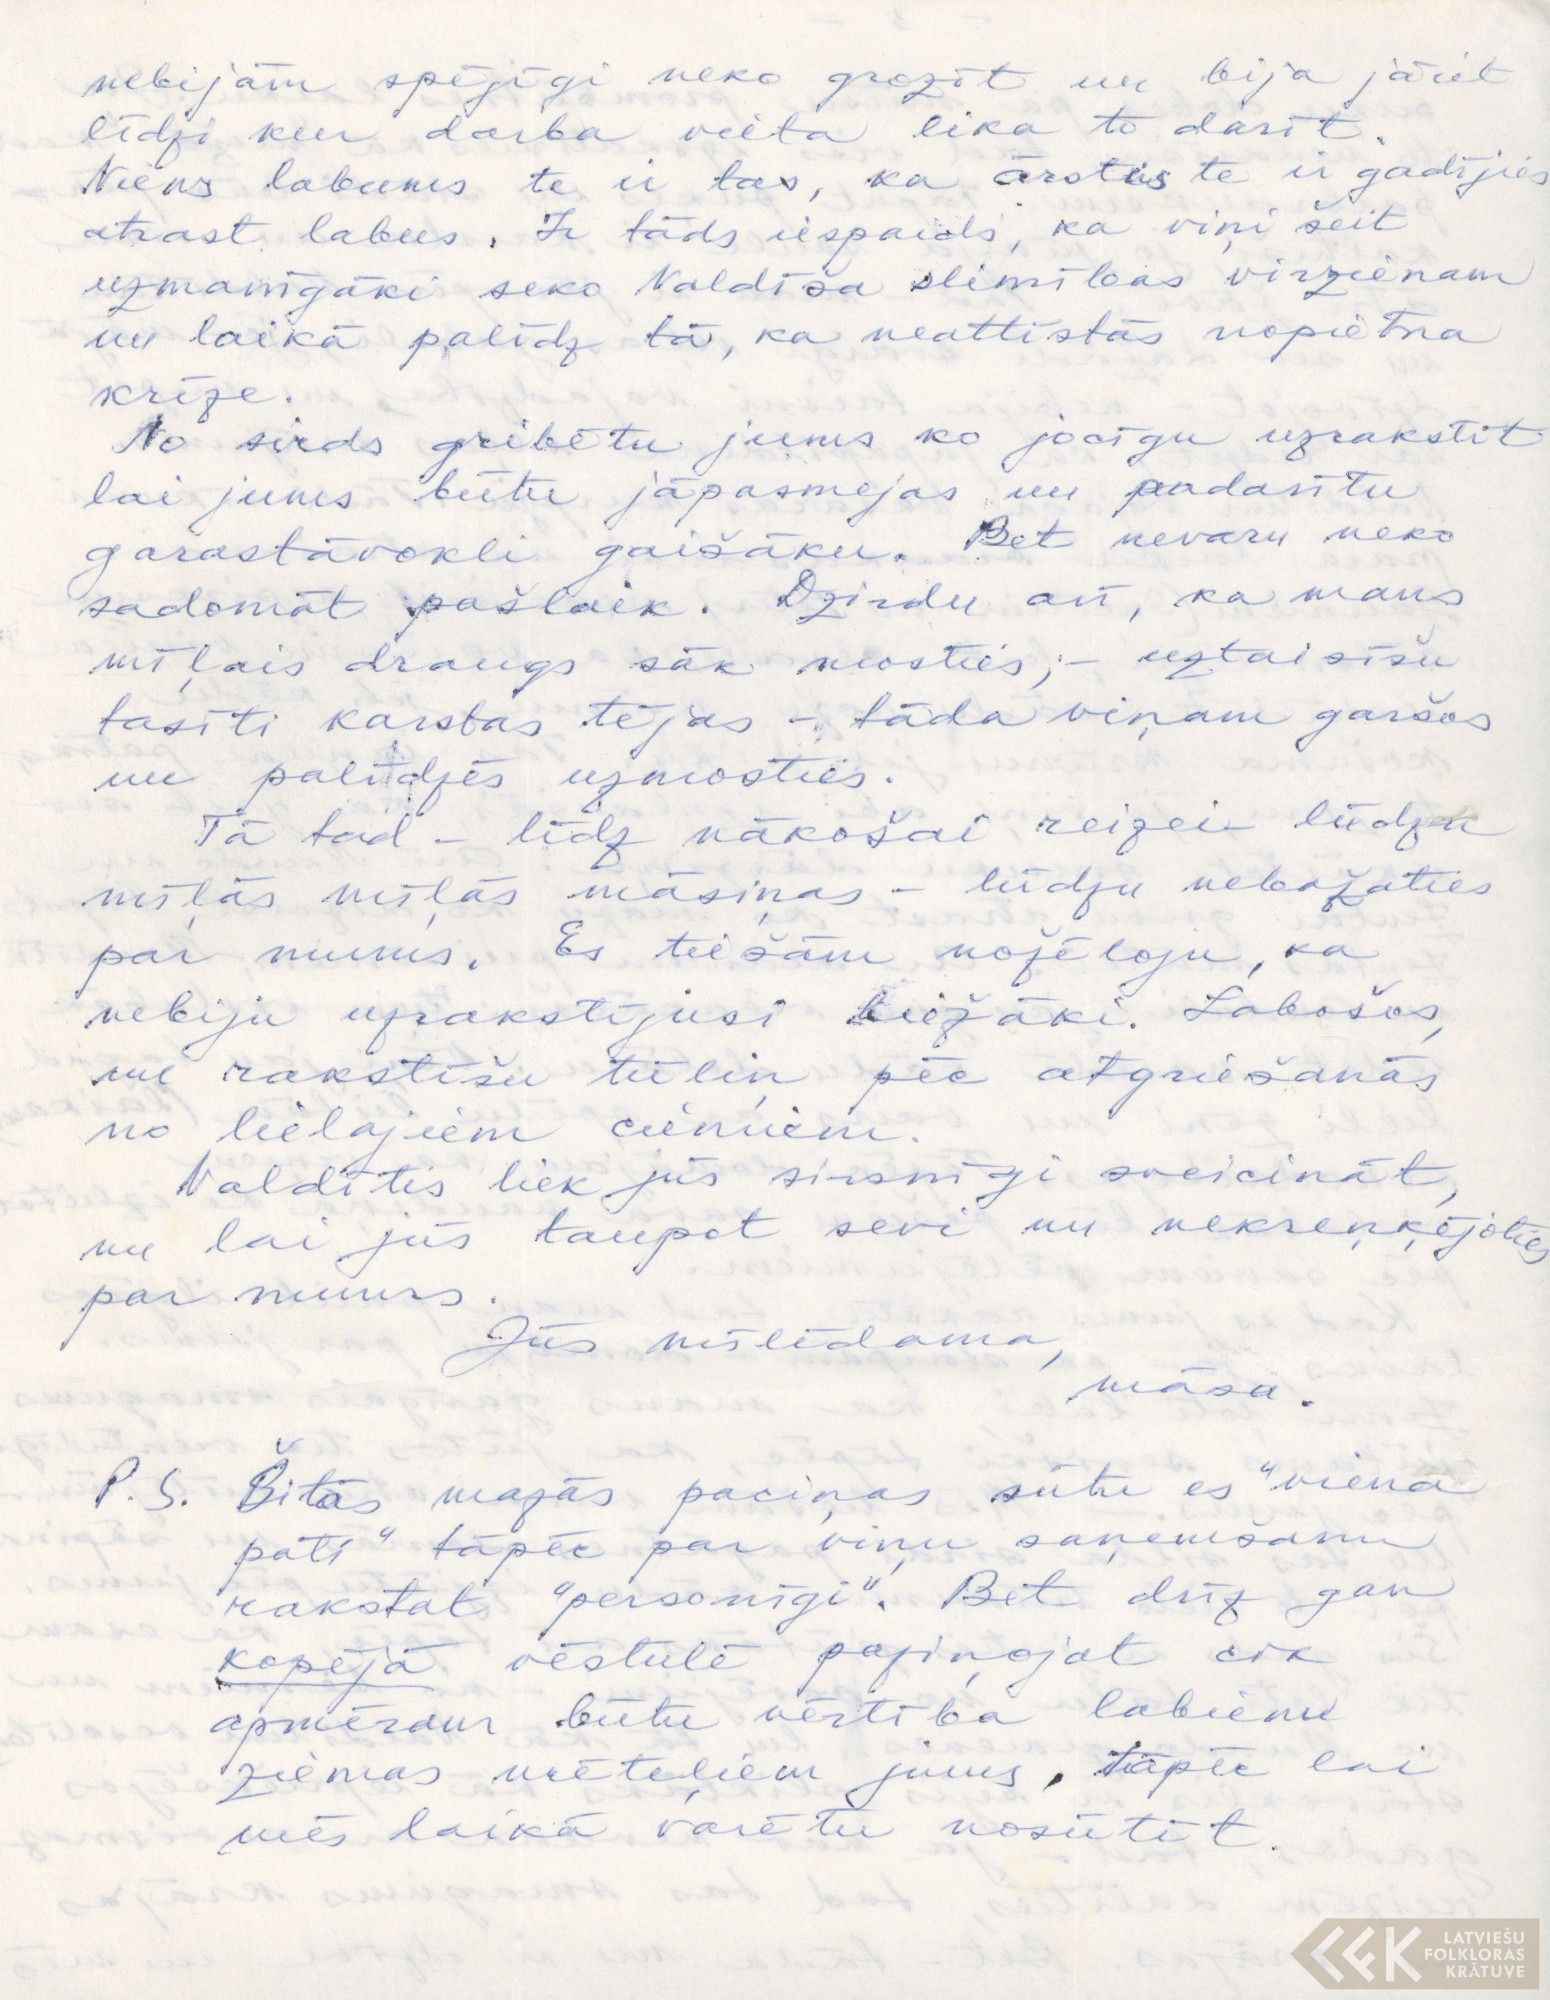 nebijām spējīgi neko grozīt un bija jāiet
līdzi kur darba vieta lika to darīt.
Viens labums te ir tas, ka ārstus te ir gadījies
atrast labus. Ir tāds iespaids, ka viņi šeit
uzmanīgāki seko Valdīša slimības virzienam
un laikā palīdz tā, ka neattīstās nopietna
krīze.
No sirds gribētu jums ko jocīgu uzrakstīt
lai jums būtu jāpasmejas un padarītu
garastāvokli gaišāku. Bet nevaru neko
sadomāt pašlaik. Dzirdu arī, ka mans
mīļais draugs sāk mosties, – uztaisīšu
tasīti karstas tējas – tāda viņam garšos
un palīdzēs uzmosties.
Tā tad – līdz nākošai reizei – lūdzu
mīļās mīļās māsiņas – lūdzu nebažaties
par mums. Es tiešām nožēloju, ka
nebiju uzrakstījusi biežāki. Labošos,
un rakstīšu tūliņ pēc atgriešanās
no lielajiem ciemiem.
Valdītis liek jūs sirsnīgi sveicināt,
un lai jūs taupot sevi un nekreņķējoties
par mums.
Jūs mīlēdama,
māsa.
P.S. Šitās mazās paciņas sūtu es "viena
pati" tāpēc par viņu saņemšanu
rakstat "personīgi". Bet drīz gan
kopējā vēstulē paziņojat cik
apmēram būtu vērtība labiem
ziemas mēteļiem jums, tāpēc lai
mēs laikā varētu nosūtīt.
LATVIEŠU
FOLKLORAS
KRĀTUVE